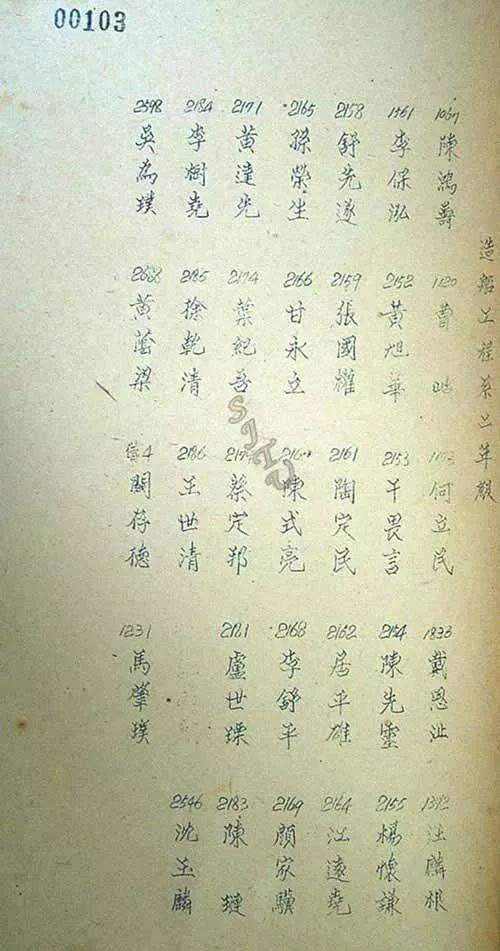 00103
造船工程系二年級
1067 陳鴻 1120 曹 何立民 1833 戴恩 1392 汪麟根
1561 李保泓 2152 黃旭華 2153 干畏言 2154 陳先 2155 楊懷謙
2158 舒先遂 2159 張國耀 2161 陶定民 2162 居平雄 2164 江遠堯
2165 孫榮生 2166 甘永立 陳式亮 2168 李舒平 2169 顏家驥
2171 黃達先 2174 葉紀吾 蔡定邦 2181 盧世 2183 陳璉
2184 李樹堯 2185 徐乾清 2186 王世清 2546 沈玉麟
2598 吳為璞 2688 黃蔭梁 4 關存德 1231 馬肇璞
SJTU